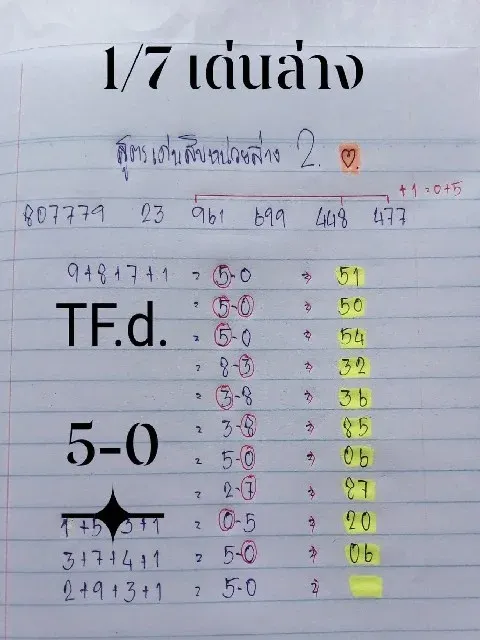 1/7 เด่นล่าง
สูตรเด่นสิบหน่วยล่าง 2. ♡
+1=0+5
807779 23 961 699 448 477
9+8+7+1 = 5-0 ⇒ 51
= 5-0 ⇒ 50
TF.d. = 5-0 ⇒ 54
= 8-3 ⇒ 32
= 3-8 ⇒ 36
= 3-8 ⇒ 85
5-0 = 5-0 ⇒ 06
= 2-7 ⇒ 87
1+5 3+1 = 0-5 ⇒ 20
3+7+4+1 = 5-0 ⇒ 06
2+9+3+1 = 5-0 ⇒